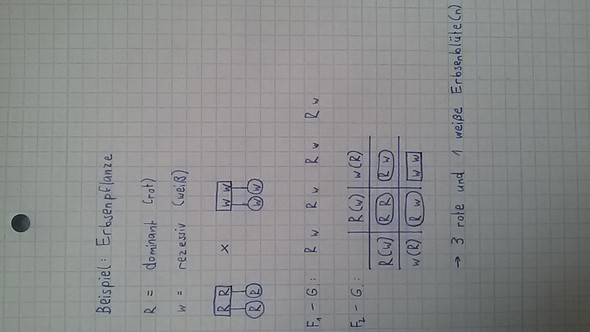 Beispiel: Erbsenpflanze
R = dominant (rot)
w = rezessiv (weiß)
R R x w w
R R w w
F₁ - G: R w R w R w R w
F₂ - G.:
R(w) w(R)
R(w) R R R w
w(R) R w w w
→ 3 rote und 1 weiße Erbsenblüte(n)